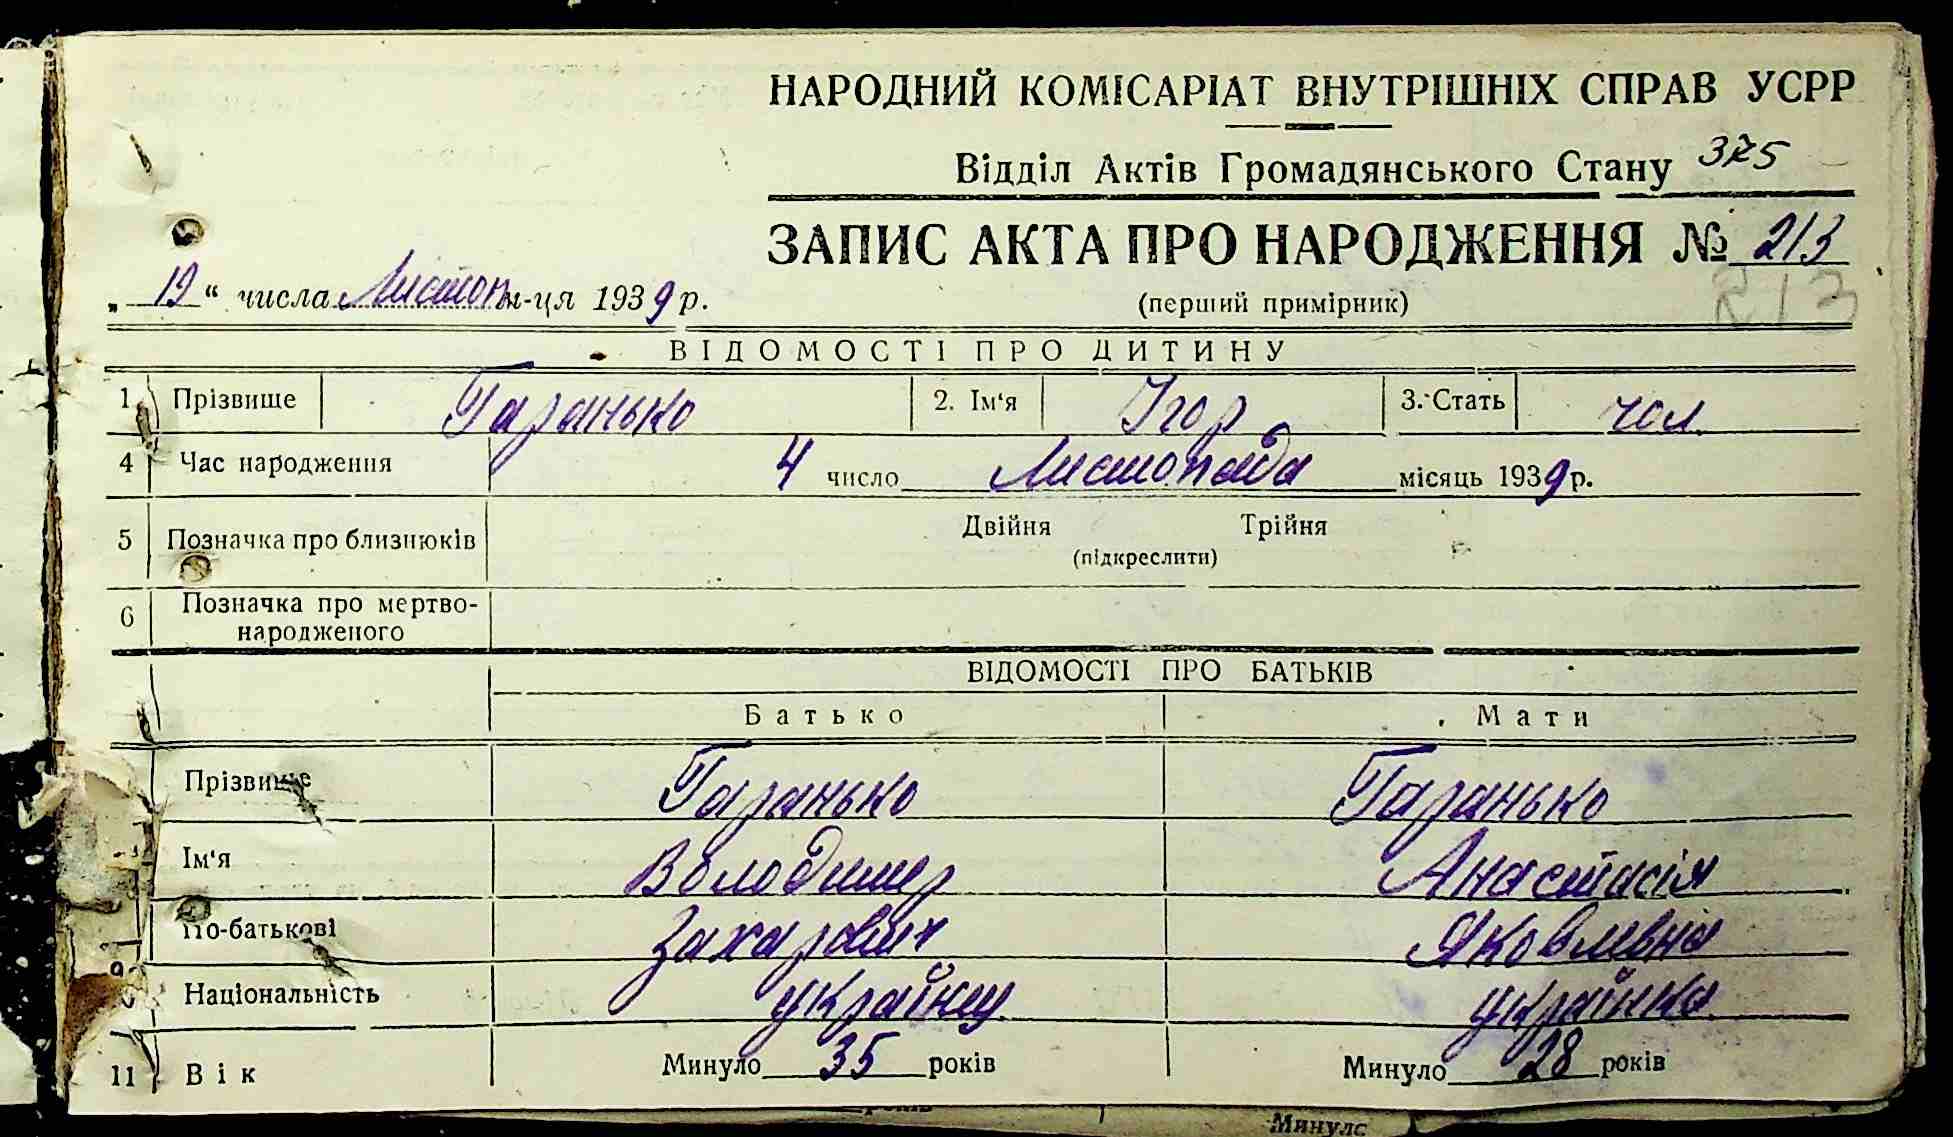 НАРОДНИЙ КОМІСАРІАТ ВНУТРІШНІХ СПРАВ УСРР
Відділ Актів Громадянського Стану 325
ЗАПИС АКТА ПРО НАРОДЖЕННЯ № 213
„19“ числа Листоп м-ця 1939 р.
(перший примірник) 213
ВІДОМОСТІ ПРО ДИТИНУ
1 Прізвище Гаранько 2. Ім‘я Ігор 3. Стать чол.
4 Час народження 4 число Листопада місяць 1939 р.
5 Позначка про близнюків Двійня Трійня
(підкреслити)
6 Позначка про мертво-
народженого
ВІДОМОСТІ ПРО БАТЬКІВ
Батько Мати
Прізвище Гаранько Гаранько
Ім‘я Володимер Анастасія
По-батькові Захарович Яковлевна
Національність українец українка
11 Вік Минуло 35 років Минуло 28 років
років Минуло